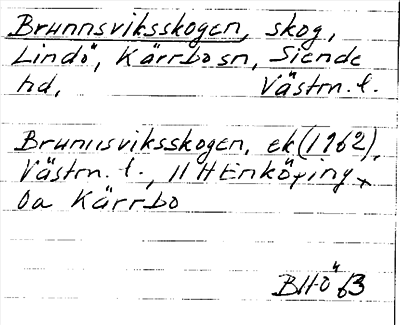 Brunnsviksskogen, skog,
Lindö, Kärrbo sn, Siende
hd, Västm. l.
Brunnsviksskogen, ek (1962),
Västm. l., 11 H Enköping
0a Kärrbo
BHÖ 63